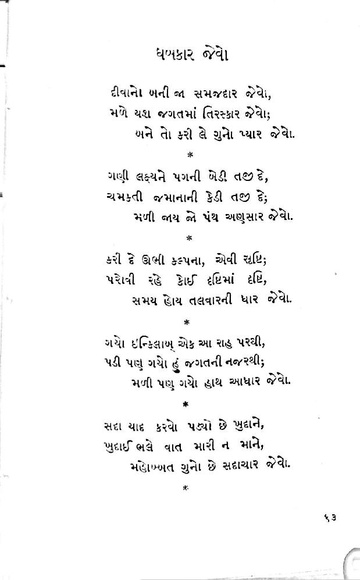 ધબકાર જેવો
દીવાનો બની જા સમજદાર જેવો,
મળે યશ જગતમાં તિરસ્કાર જેવો;
બને તો કરી લે ગુનો પ્યાર જેવો.
*
ગણી લક્ષ્યને પગની બેડી તજી દે,
ચમકતી જમાનાની કેડી તજી દે;
મળી જાય જો પંથ અણુસાર જેવો.
*
કરી દે ઊભી કલ્પના, એવી સૃષ્ટિ;
પરોવી રહે કોઈ દૃષ્ટિમાં દૃષ્ટિ,
સમય હોય તલવારની ધાર જેવો.
*
ગયો ઇન્કિલાબ્ એક આ રાહ પરથી,
પડી પણ ગયો હું જગતની નજરથી;
મળી પણ ગયો હાથ આધાર જેવો.
*
સદા યાદ કરવો પડ્યો છે ખુદાને,
ખુદાઈ ભલે વાત મારી ન માને,
મહોબ્બત ગુનો છે સદાચાર જેવો.
*
૬૩